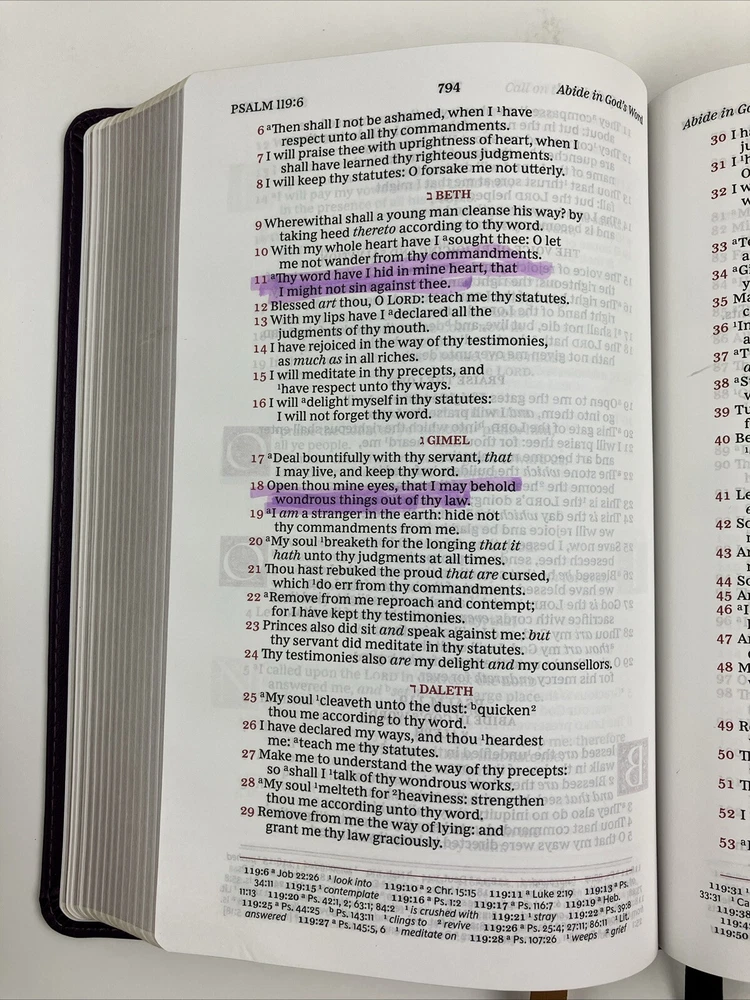 PSALM 119:6
794
Abide in God's Word
6 ᵃThen shall I not be ashamed, when I ¹have
respect unto all thy commandments.
7 I will praise thee with uprightness of heart, when I
shall have learned thy righteous judgments.
8 I will keep thy statutes: O forsake me not utterly.
ב BETH
9 Wherewithal shall a young man cleanse his way? by
taking heed thereto according to thy word.
10 With my whole heart have I ᵃsought thee: O let
me not wander from thy commandments.
11 ᵃThy word have I hid in mine heart, that
I might not sin against thee.
12 Blessed art thou, O LORD: teach me thy statutes.
13 With my lips have I ᵃdeclared all the
judgments of thy mouth.
14 I have rejoiced in the way of thy testimonies,
as much as in all riches.
15 I will meditate in thy precepts, and
¹have respect unto thy ways.
16 I will ᵃdelight myself in thy statutes:
I will not forget thy word.
ג GIMEL
17 ᵃDeal bountifully with thy servant, that
I may live, and keep thy word.
18 Open thou mine eyes, that I may behold
wondrous things out of thy law.
19 ᵃI am a stranger in the earth: hide not
thy commandments from me.
20 ᵃMy soul ¹breaketh for the longing that it
hath unto thy judgments at all times.
21 Thou hast rebuked the proud that are cursed,
which ¹do err from thy commandments.
22 ᵃRemove from me reproach and contempt;
for I have kept thy testimonies.
23 Princes also did sit and speak against me: but
thy servant did meditate in thy statutes.
24 Thy testimonies also are my delight and my counsellors.
ד DALETH
25 ᵃMy soul ¹cleaveth unto the dust: ᵇquicken²
thou me according to thy word.
26 I have declared my ways, and thou ¹heardest
me: ᵃteach me thy statutes.
27 Make me to understand the way of thy precepts:
so ᵃshall I ¹talk of thy wondrous works.
28 ᵃMy soul ¹melteth for ²heaviness: strengthen
thou me according unto thy word.
29 Remove from me the way of lying: and
grant me thy law graciously.
119:6 ᵃ Job 22:26 ¹ look into 119:10 ᵃ 2 Chr. 15:15 119:11 ᵃ Luke 2:19 119:13 ᵃ Ps.
34:11 119:15 ¹ contemplate 119:16 ᵃ Ps. 1:2 119:17 ᵃ Ps. 116:7 119:19 ᵃ Heb.
11:13 119:20 ᵃ Ps. 42:1, 2; 63:1; 84:2 ¹ is crushed with 119:21 ¹ stray 119:22 ᵃ Ps. 39:8
119:25 ᵃ Ps. 44:25 ᵇ Ps. 143:11 ¹ clings to ² revive 119:26 ᵃ Ps. 25:4; 27:11; 86:11 ¹ Lit.
answered 119:27 ᵃ Ps. 145:5, 6 ¹ meditate on 119:28 ᵃ Ps. 107:26 ¹ weeps ² grief
Abide in
30 I
31 I
32 I
33
34
35
36
37
38
39
40
41
42
43
44
45
46
47
48
49
50
51
52 I
53
119:31
33:31